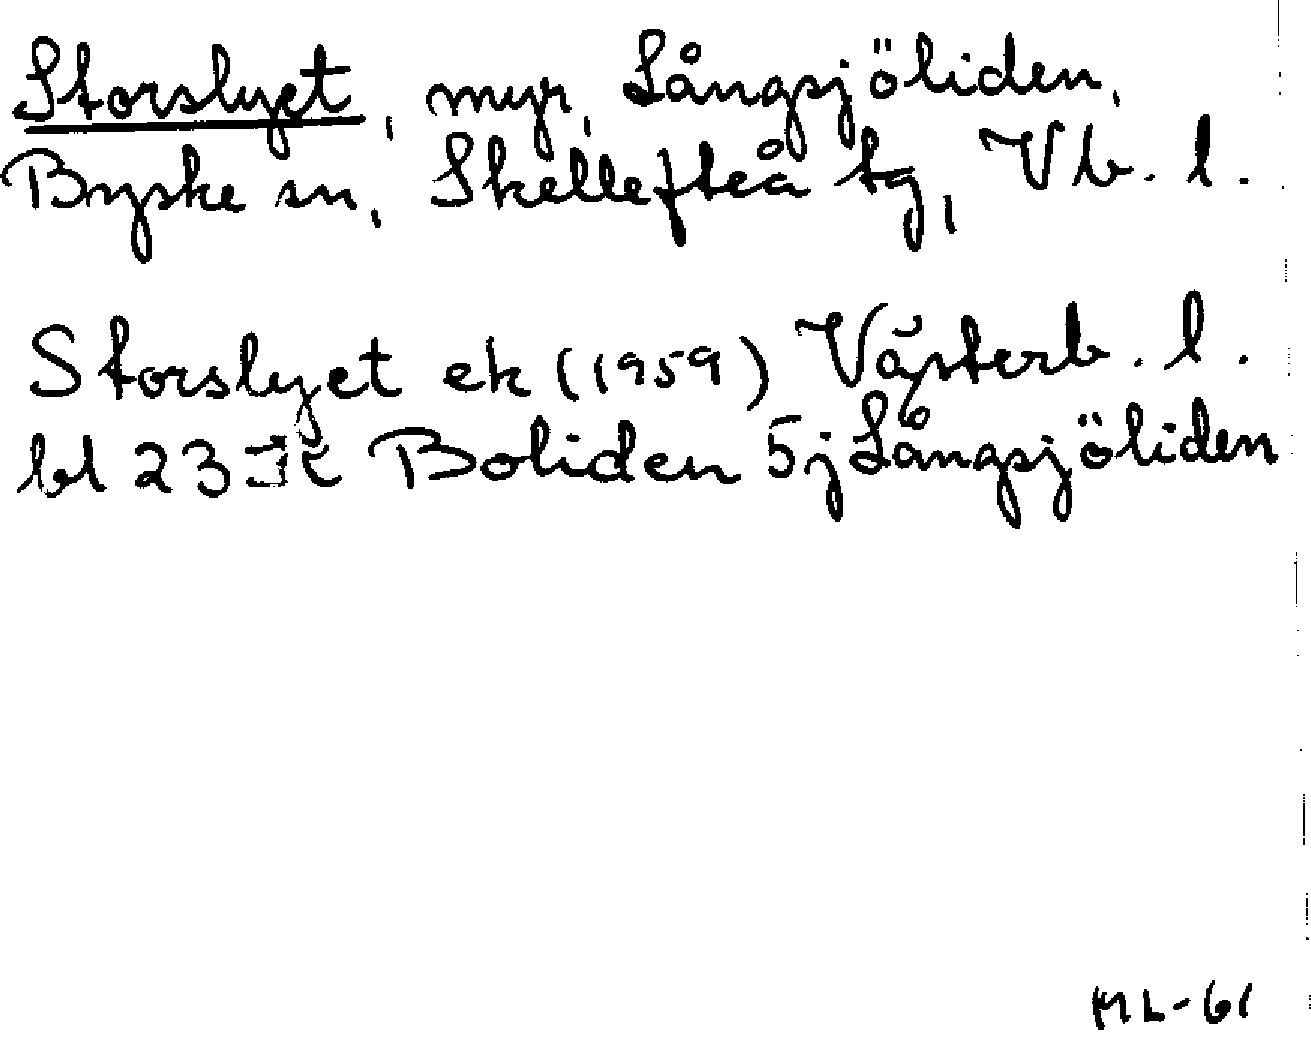 Storslyet, myr, Långsjöliden,
Byske sn, Skellefteå tg, Vb. l.
Storslyet ek (1959) Västerb. l.
bl 23 K Boliden 5j Långsjöliden
ML-61